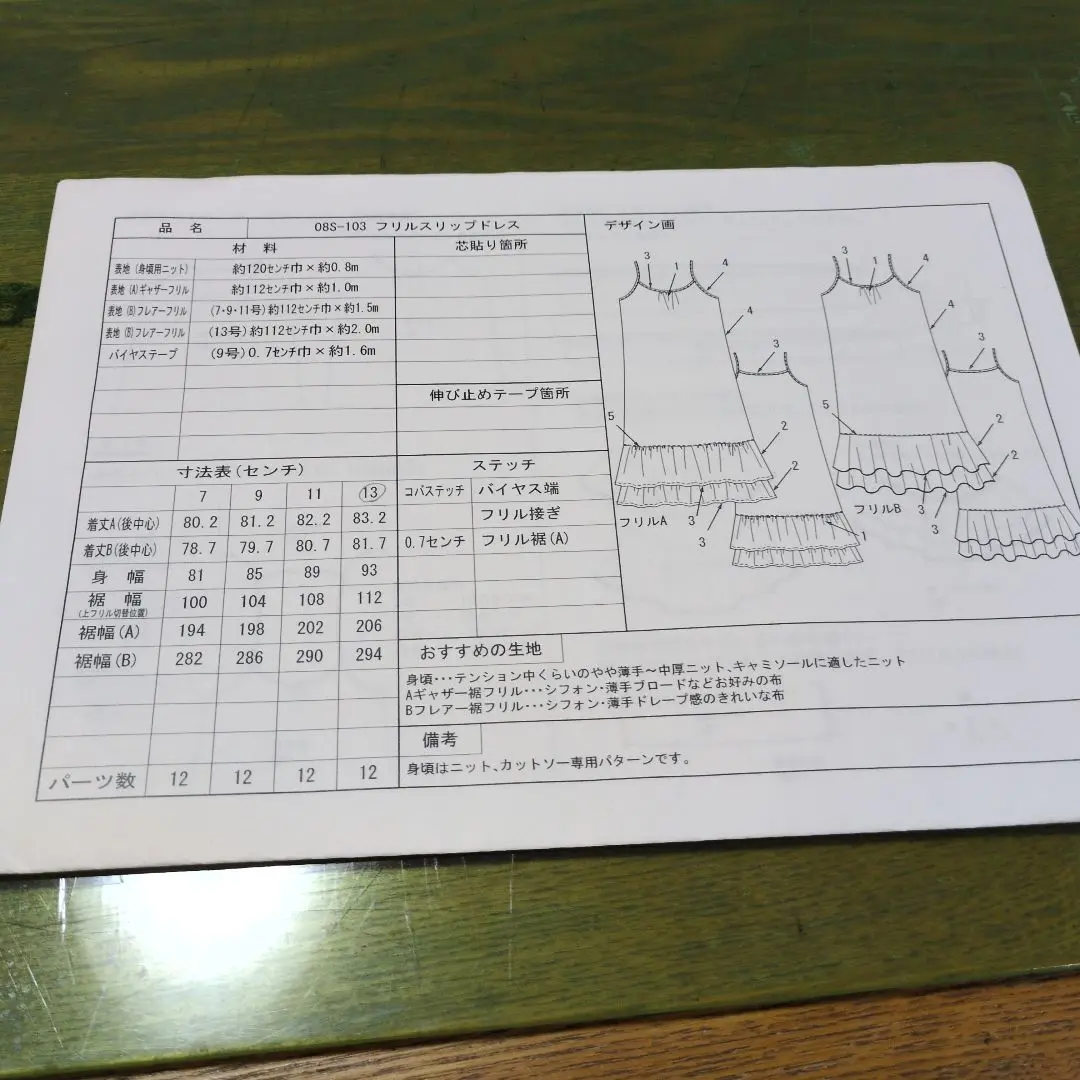 品 名 08S-103 フリルスリップドレス
材 料
表地 (身頃用ニット) 約120センチ巾×約0.8m
表地 (A)ギャザーフリル 約112センチ巾×約1.0m
表地 (B)フレアーフリル (7・9・11号)約112センチ巾×約1.5m
表地 (B)フレアーフリル (13号)約112センチ巾×約2.0m
バイヤステープ (9号)0.7センチ巾×約1.6m
芯貼り箇所
伸び止めテープ箇所
寸法表(センチ)
7 9 11 13
着丈A(後中心) 80.2 81.2 82.2 83.2
着丈B(後中心) 78.7 79.7 80.7 81.7
身 幅 81 85 89 93
裾 幅 100 104 108 112
(上フリル切替位置)
裾幅(A) 194 198 202 206
裾幅(B) 282 286 290 294
パーツ数 12 12 12 12
ステッチ
コバステッチ バイヤス端
フリル接ぎ
0.7センチ フリル裾(A)
デザイン画
3 1 4 3 1 4
4 4
3 3
5 5
2 2
2 2
フリルA 3 フリルB 3
3 1 3
おすすめの生地
身頃・・・テンション中くらいのやや薄手～中厚ニット、キャミソールに適したニット
Aギャザー裾フリル・・・シフォン・薄手ブロードなどお好みの布
Bフレアー裾フリル・・・シフォン・薄手ドレープ感のきれいな布
備考
身頃はニット、カットソー専用パターンです。